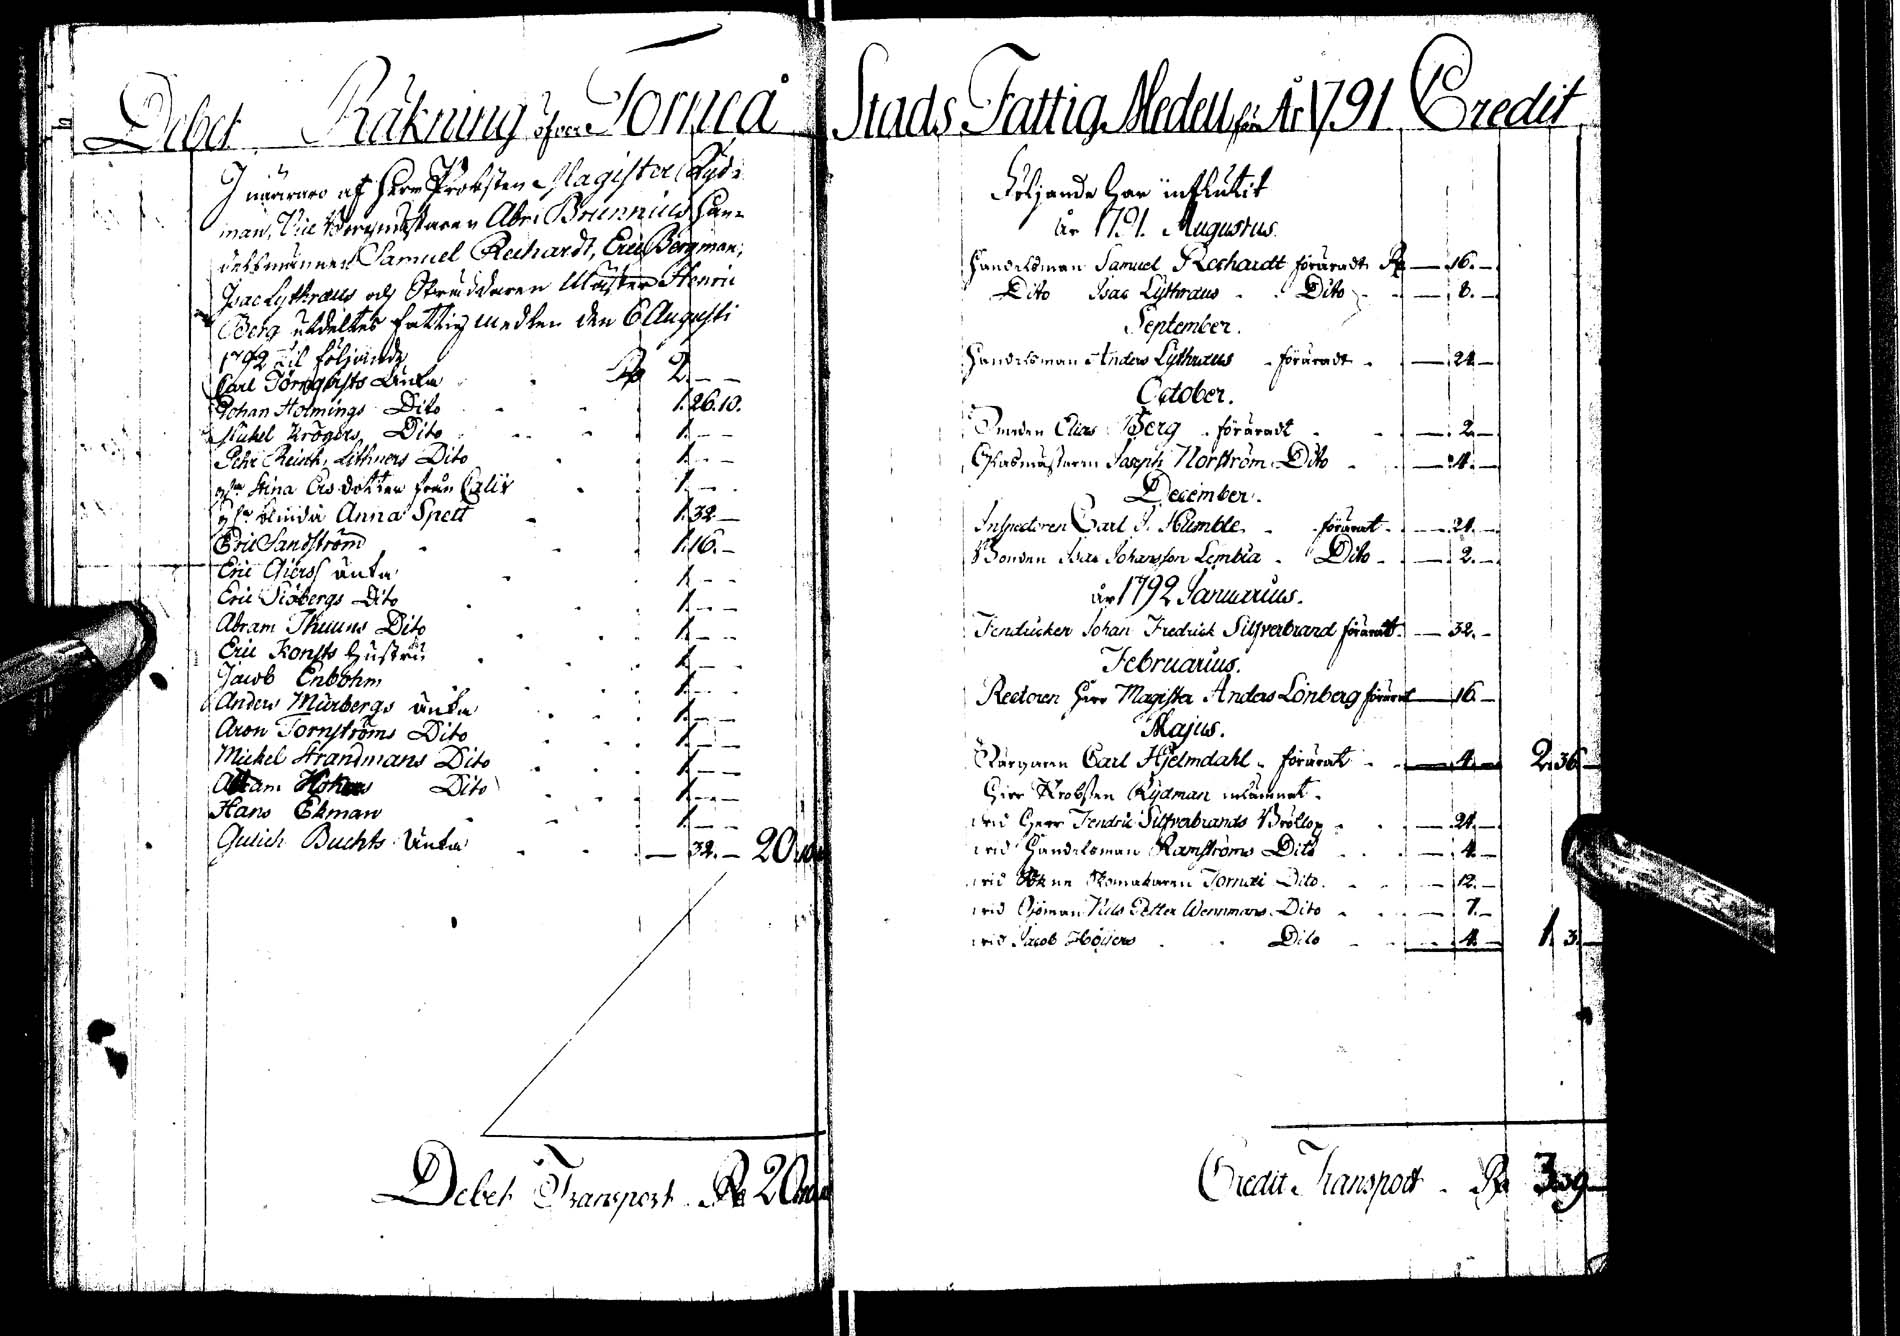 Debet Räkning öfver Torneå
I närvaro af Herr Probsten Magister Ryd=
man, Vice Borgmästaren Abr: Brunnius Han=
delsmännen Samuel Rechardt, Eric Bergman,
Isac Lythræus och Skräddaren Mäster Henric
Berg utdeltes fattigmedlen den 6 Augusti
1792 til följande
Carl Törnqvists Änka Rd 2.--
Johan Holmings Dito 1.26.10.
Mickel Krögers Dito 1.--
Pehr Reinh. Lithners Dito 1.--
Stina Ersdotter från Calix 1.--
blinda Anna Spett 1.32.-
Eric Sandström 1.16.-
Eric Giers änka 1.--
Eric Siöbergs Dito 1.--
Abram Thuuns Dito 1.--
Eric Konsts Hustru 1.--
Jacob Enbohm 1.--
Anders Murbergs änka 1.--
Aron Tornströms Dito 1.--
Mickel Strandmans Dito 1.--
Abram Dito 1.--
Hans Ekman 1.--
Buchts Änka - 32.- 20
Debet Transport Rd 20
Stads Fattig Medell för År 1791 Credit
Följande har influtit
år 1791. Augustus.
Handelsman Samuel Rechardt föräradt Rd - 16.-
Dito Isac Lythræus Dito - 8.-
September.
Handelsman Anders Lythræus föräradt - 24.-
October.
Smeden Elias Berg föräradt - 2.-
Glasmästaren Joseph Norström Dito - 4.-
December.
Inspectoren Carl J. Humble förärat - 24.-
Bonden Isac Johansson Lembia Dito - 2.-
år 1792 Januarius.
Fendricken Johan Fredrick Silfverbrand förärat - 32.-
Februarius.
Rectoren Herr Magister Anders Lönberg förärat - 16.-
Majus.
Färgaren Carl Hjelmdahl förärat - 4.- 2.36.-
Herr Probsten Rydman inlämnat
vid Herr Fendric Silfverbrands Bröllop - 24.-
vid Handelsman Ramströms Dito - 4.-
vid Skomakaren Tornæi Dito - 12.-
vid Sjöman Nils Petter Wennmans Dito - 7.-
vid Jacob Höijers Dito - 4.- 1. 3.-
Credit Transport Rd 3.39.-